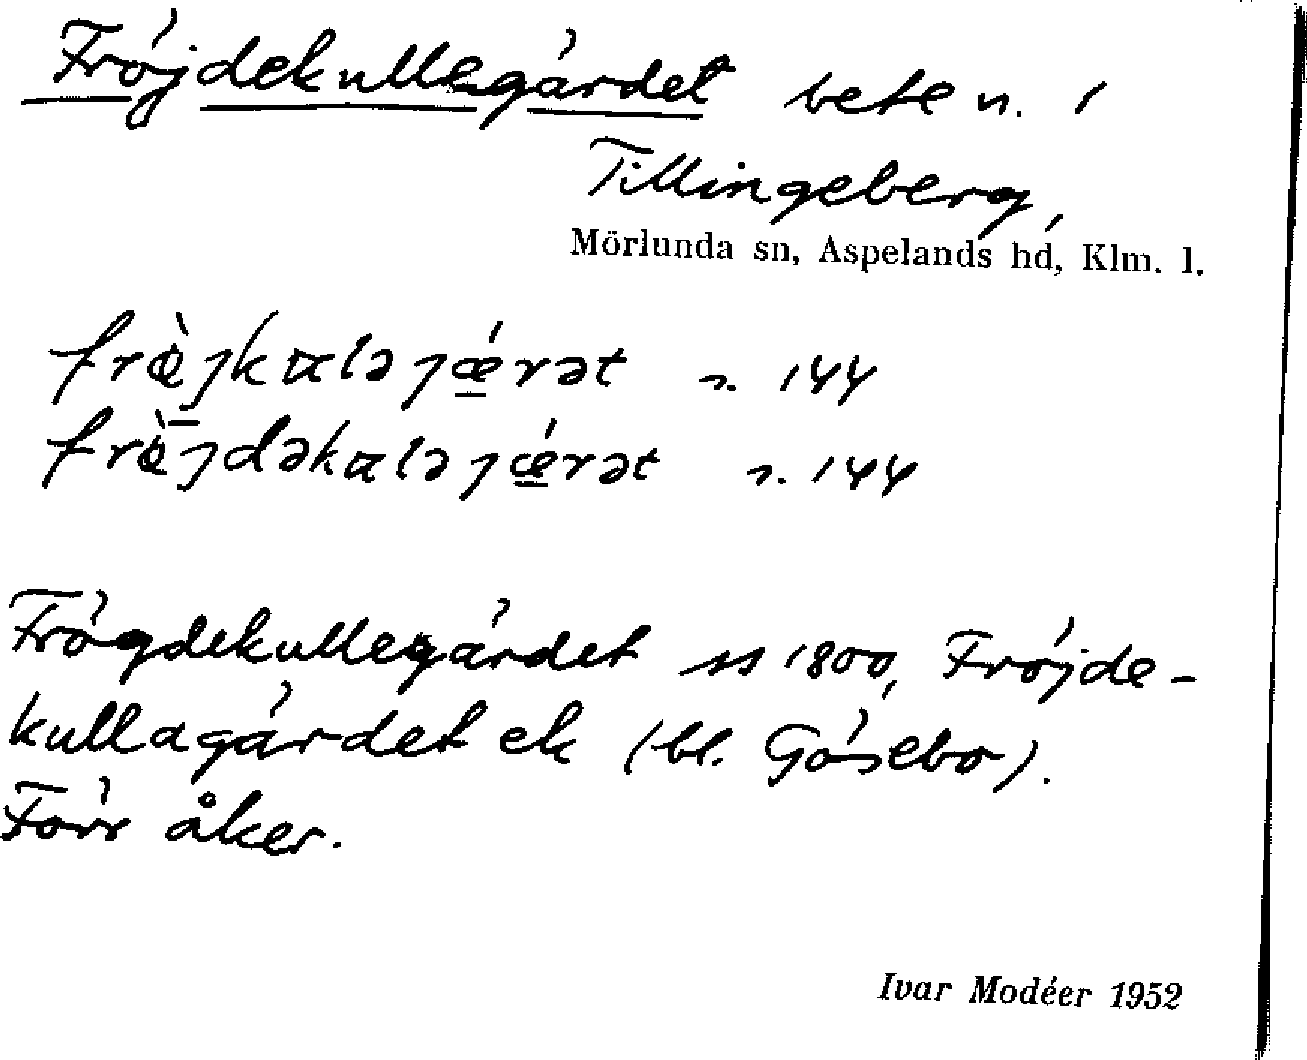 Fröjdekullegärdet bete n. i
Tillingeberg,
Mörlunda sn, Aspelands hd, Klm. l.
frœ̀jkuləjǽrət n. 144
frœ̀jdəkuləjǽrət n. 144
Frögdekullegärdet ss 1800, Fröjde-
kullagärdet ek (bl. Gösebo).
Förr åker.
Ivar Modéer 1952